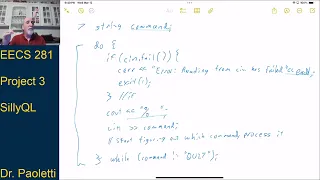 EECS 281
Project 3
SillyQL
Dr. Paoletti
> string command;
do {
if (cin.fail()) {
cerr << "Error: Reading from cin has failed" << endl;
exit(1);
} // if
cout << "% ";
cin >> command;
// start figuring out which command, process it
} while (command != "QUIT");